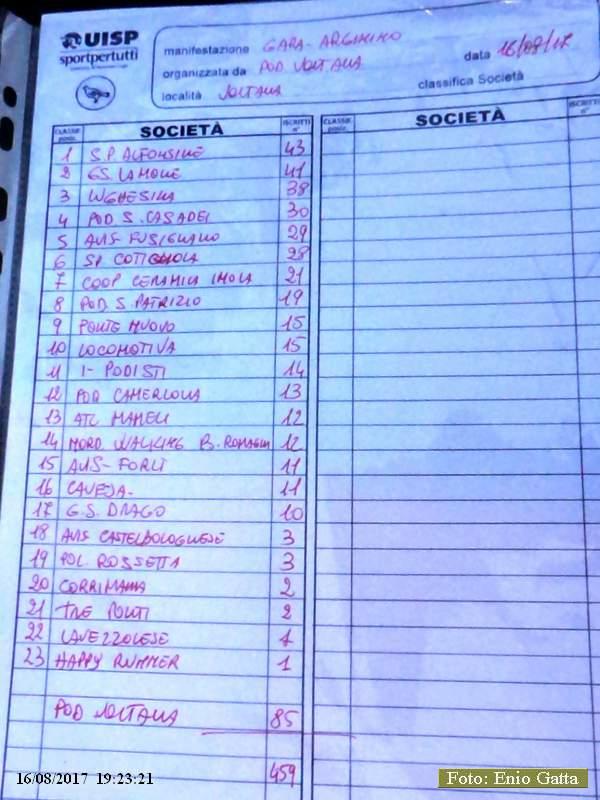 UISP
sportpertutti
manifestazione GARA - ARGININO data 16/08/17
organizzata da POD VOLTANA
località VOLTANA classifica Società
CLASSIF. posiz. SOCIETÀ ISCRITTI n° CLASSIF. posiz. SOCIETÀ ISCRITTI n°
1 S.P. ALFONSINE 43
2 GS. LAMONE 41
3 LUGHESINA 38
4 POD S. CASADEI 30
5 AVIS FUSIGNANO 29
6 S.P. COTIGNOLA 28
7 COOP CERAMICA IMOLA 21
8 POD. S. PATRIZIO 19
9 PONTE NUOVO 15
10 LOCOMOTIVA 15
11 I- PODISTI 14
12 POD CAMERLONA 13
13 ATL MAMELI 12
14 NORD WALKING B. ROMAGNA 12
15 AVIS- FORLI 11
16 CAVEJA- 11
17 G.S. DRAGO 10
18 AVIS CASTELBOLOGNESE 3
19 POL. ROSSETTA 3
20 CORRIMANIA 2
21 TRE PONTI 2
22 LAVEZZOLESE 1
23 HAPPY RUNNER 1
POD VOLTANA 85
459
16/08/2017 19:23:21
Foto: Enio Gatta